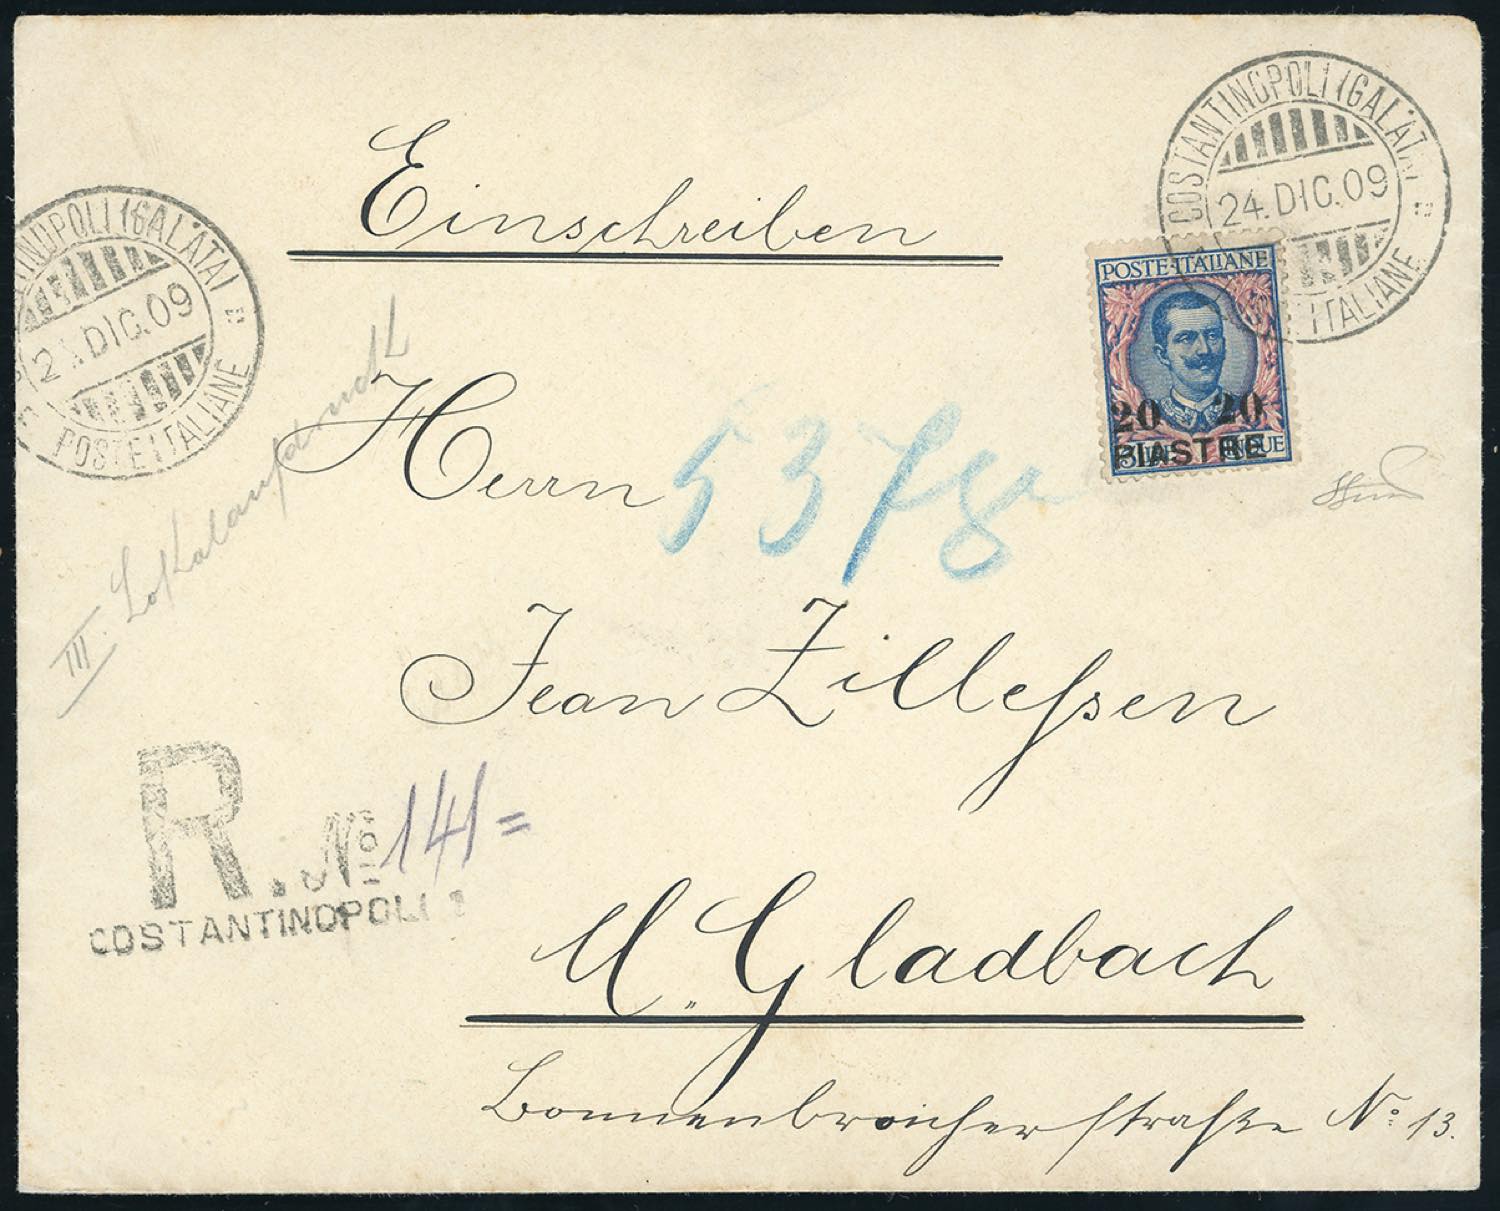 COSTANTINOPOLI (GALATA)
24. DIC. 09
POSTE ITALIANE
Einschreiben
TINOPOLI (GALATA)
2 DIC. 09
POSTE ITALIANE
POSTE·ITALIANE
20 20
PIASTRE
Herrn
5378
III. Lokalaufdruck
Jean Zillessen
R. No 141=
COSTANTINOPOLI 1
M. Gladbach
Bonnenbroicherstraße No. 13.